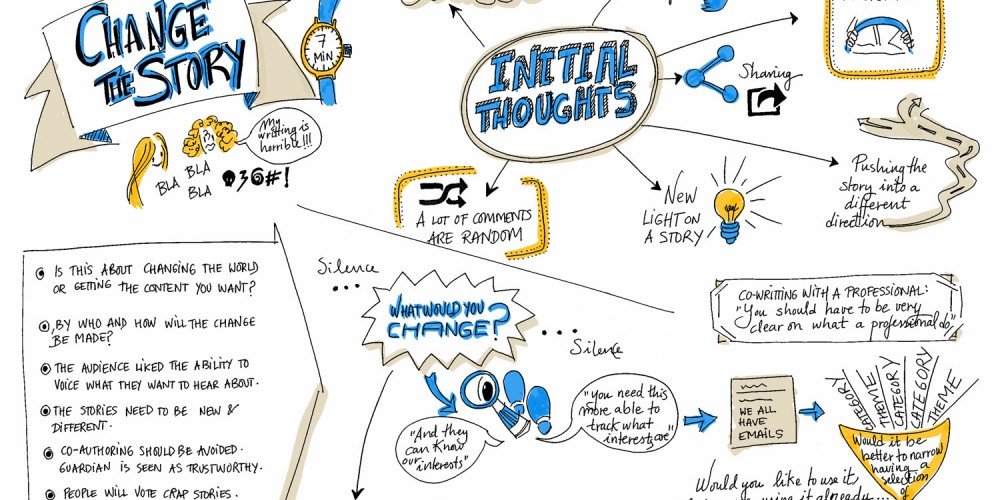 CHANGE
THE STORY
7
MIN
My
writting is
horrible!!!
BLA
BLA
BLA
INITIAL
THOUGHTS
Sharing
A LOT OF COMMENTS
ARE RANDOM
NEW
LIGHT ON
A STORY
Pushing the
story into a
different
direction
IS THIS ABOUT CHANGING THE WORLD
OR GETTING THE CONTENT YOU WANT?
BY WHO AND HOW WILL THE CHANGE
BE MADE?
THE AUDIENCE LIKED THE ABILITY TO
VOICE WHAT THEY WANT TO HEAR ABOUT.
THE STORIES NEED TO BE NEW &
DIFFERENT.
CO-AUTHORING SHOULD BE AVOIDED.
GUARDIAN IS SEEN AS TRUSTWORTHY.
PEOPLE WILL VOTE CRAP STORIES.
Silence
...
WHAT WOULD YOU
CHANGE?
...
Silence
"And they
can know
our interests"
"you need this
more able to
track what
interests are"
CO-WRITING WITH A PROFESSIONAL:
"You should have to be very
clear on what a professional do"
WE ALL
HAVE
EMAILS
CATEGORY
THEME
CATEGORY
CATEGORY
THEME
Would it be
better to narrow
having a
selection
of
Would you like to use it
using it already...